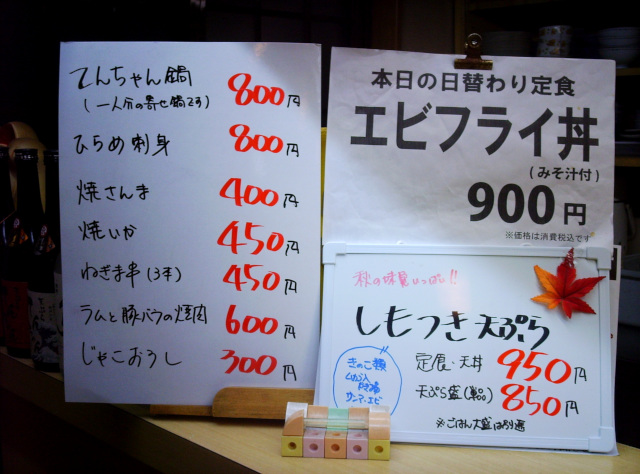 てんちゃん鍋 800円
(一人分の寄せ鍋です)
ひらめ刺身 800円
焼さんま 400円
焼いか 450円
ねぎま串(3本) 450円
ラムと豚バラの焼肉 600円
じゃこおろし 300円
本日の日替わり定食
エビフライ丼
(みそ汁付)
900円
※価格は消費税込です
秋の味覚いっぱい!!
しもつき天ぷら
定食・天丼 950円
天ぷら盛(単品) 850円
※ごはん大盛は別途
きのこ類
サンマ・エビ